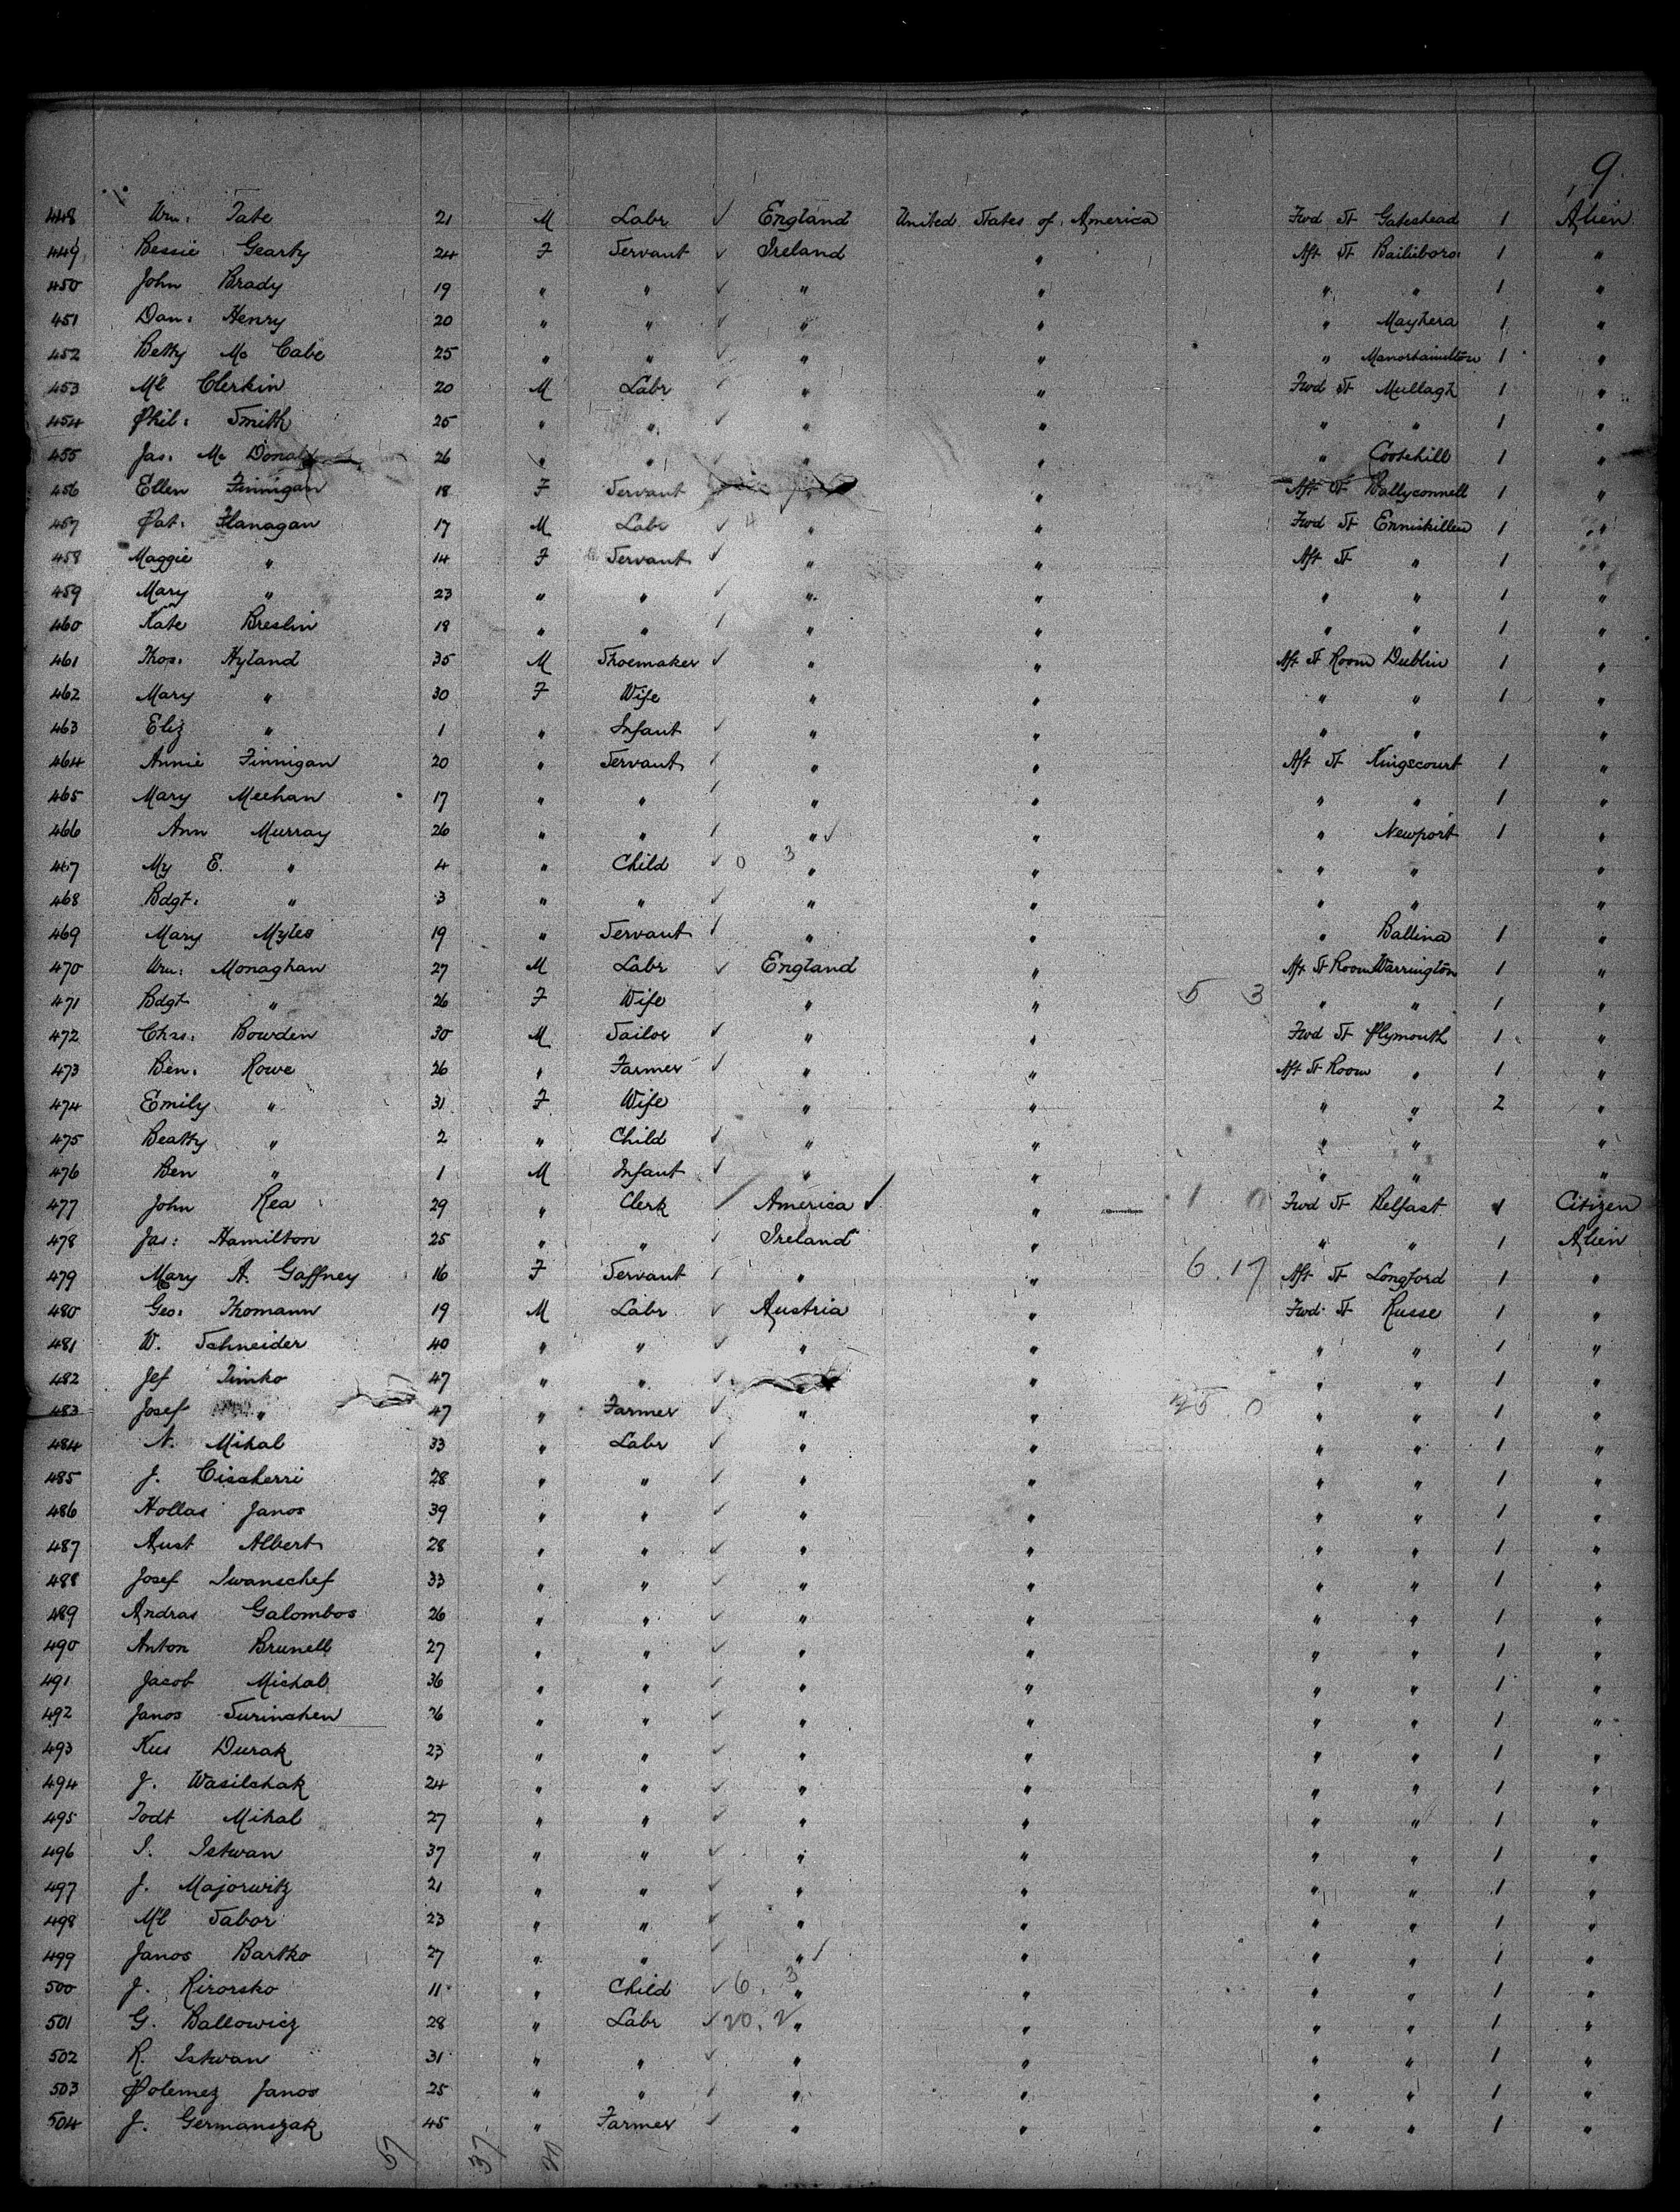 9
448 Wm: Tate 21 M Labr ✓ England United States of America Fwd St Gateshead 1 Alien
449 Bessie Gearty 24 F Servant ✓ Ireland " Aft St Bailieboro 1 "
450 John Brady 19 " " ✓ " " " " 1 "
451 Dan: Henry 20 " " ✓ " " " Maghera 1 "
452 Betty Mc Cabe 25 " " ✓ " " " Manorhamilton 1 "
453 Ml Clerkin 20 M Labr ✓ " " Fwd St Mullagh 1 "
454 Phil: Smith 25 " " ✓ " " " " 1 "
455 Jas: Mc Donald 26 " " " " " Cootehill 1 "
456 Ellen Finnigan 18 F Servant " " Aft St Ballyconnell 1 "
457 Pat: Flanagan 17 M Labr ✓ 4 " " Fwd St Enniskillen 1 "
458 Maggie " 14 F Servant ✓ " " Aft St " 1 "
459 Mary " 23 " " ✓ " " " " 1 "
460 Kate Breslin 18 " " ✓ " " " " 1 "
461 Thos: Hyland 35 M Shoemaker ✓ " " Aft St Room Dublin 1 "
462 Mary " 30 F Wife " " " " 1 "
463 Eliz " 1 " Infant ✓ " " " " "
464 Annie Finnigan 20 " Servant ✓ " " Aft St Kingscourt 1 "
465 Mary Meehan 17 " " ✓ " " " " 1 "
466 Ann Murray 26 " " ✓ " ✓ " " Newport 1 "
467 My E. " 4 " Child ✓ 0 3 " " " " "
468 Bdgt: " 3 " " ✓ " " " " "
469 Mary Myles 19 " Servant ✓ " " " Ballina 1 "
470 Wm: Monaghan 27 M Labr ✓ England " Aft St Room Warrington 1 "
471 Bdgt " 26 F Wife " " 5 3 " " 1 "
472 Chas: Bowden 30 M Tailor ✓ " " Fwd St Plymouth 1 "
473 Ben: Rowe 26 " Farmer ✓ " " Aft St Room " 1 "
474 Emily " 31 F Wife " " " " 2 "
475 Beatty " 2 " Child ✓ " " " " "
476 Ben " 1 M Infant ✓ " " " " "
477 John Rea 29 " Clerk ✓ America ✓ " 1 0 Fwd St Belfast 1 Citizen
478 Jas: Hamilton 25 " " ✓ Ireland " " " 1 Alien
479 Mary A. Gaffney 16 F Servant ✓ " " 6. 17 Aft St Longford 1 "
480 Geo: Thomann 19 M Labr ✓ Austria " Fwd St Russe 1 "
481 W. Schneider 40 " " ✓ " " " " 1 "
482 Jef Timko 47 " " ✓ " " " 1 "
483 Josef " 47 " Farmer ✓ " " 25. 0 " " 1 "
484 N. Mihal 33 " Labr ✓ " " " " 1 "
485 J. Cischerri 28 " " ✓ " " " " 1 "
486 Hollas Janos 39 " " ✓ " " " " 1 "
487 Aust Albert 28 " " ✓ " " " " 1 "
488 Josef Iwanschef 33 " " ✓ " " " " 1 "
489 Andras Galombos 26 " " ✓ " " " " 1 "
490 Anton Brunell 27 " " ✓ " " " " 1 "
491 Jacob Michal 36 " " ✓ " " " " 1 "
492 Janos Surinshen 26 " " ✓ " " " " 1 "
493 Kus Durak 23 " " ✓ " " " " 1 "
494 J. Wasilchak 24 " " ✓ " " " " 1 "
495 Todt Mihal 27 " " ✓ " " " " 1 "
496 I. Istwan 37 " " ✓ " " " " 1 "
497 J. Majorwitz 21 " " ✓ " " " " 1 "
498 Ml Sabor 23 " " ✓ " " " " 1 "
499 Janos Bartko 27 " " ✓ " ✓ " " " 1 "
500 J. Rirorsko 11 " Child ✓ 6. 3 " " " " 1 "
501 G. Ballowicz 28 " Labr ✓ 20. 2 " " " " 1 "
502 R. Istwan 31 " " ✓ " " " " 1 "
503 Polemez Janos 25 " " ✓ " " " " 1 "
504 J. Germanszak 45 " Farmer ✓ " " " " 1 "
57 37 20